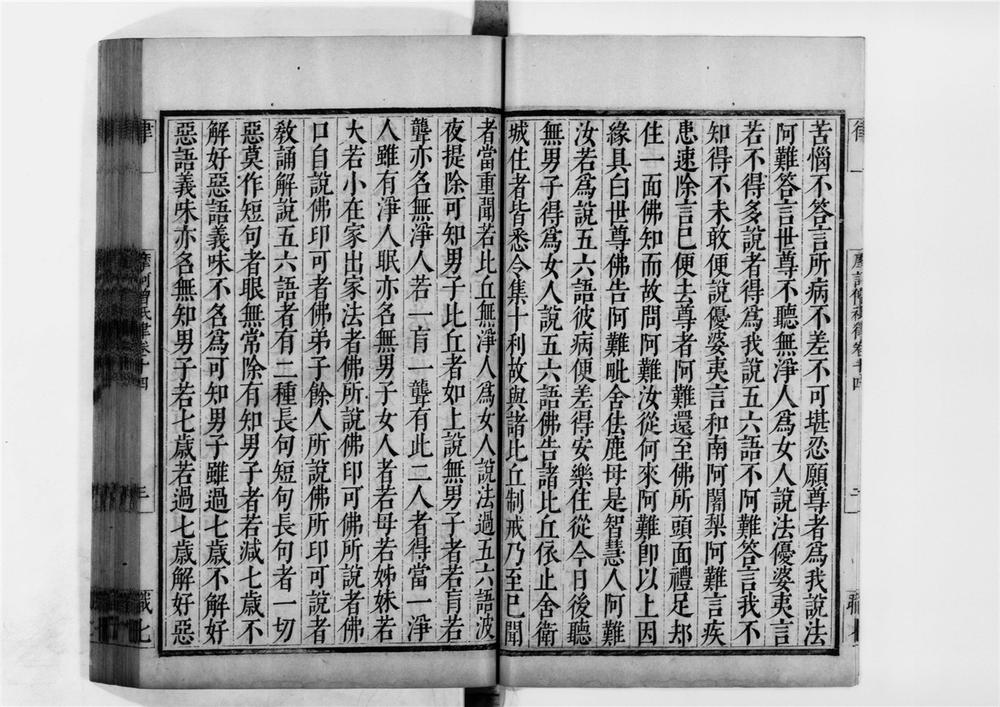 苦惱不答言所病不差不可堪忍願尊者為我說法
阿難答言世尊不聽無淨人為女人說法優婆夷言
若不得多說者得為我說五六語不阿難答言我不
知得不未敢便說優婆夷言和南阿闍梨阿難言疾
患速除言已便去尊者阿難還至佛所頭面禮足却
住一面佛知而故問阿難汝從何來阿難即以上因
緣具白世尊佛告阿難毗舍佉鹿母是智慧人阿難
汝若為說五六語彼病便差得安樂住從今日後聽
無男子得為女人說五六語佛告諸比丘依止舍衛
城住者皆悉令集十利故與諸比丘制戒乃至已聞
者當重聞若比丘無淨人為女人說法過五六語波
夜提除有知男子比丘者如上說無男子者若盲若
聾亦名無淨人若一盲一聾有此二人者得當一淨
人雖有淨人眠亦名無男子女人者若母若姊妹若
大若小在家出家法者佛所說佛印可佛所說者佛
口自說佛印可者佛弟子餘人所說佛所印可說者
教誦解說五六語者有二種長句短句長句者一切
惡莫作短句者眼無常除有知男子者若減七歲不
解好惡語義味不名為可知男子雖過七歲不解好
惡語義味亦名無知男子若七歲若過七歲解好惡
律
摩訶僧祇律卷十四
三
職七